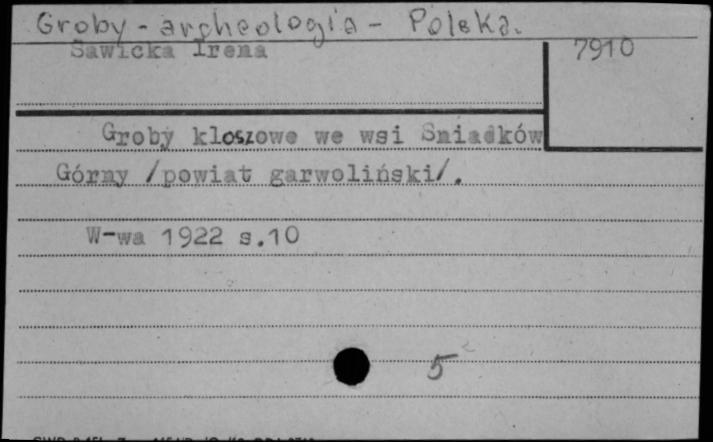 Groby - archeologia - Polska.
Sawicka Irena
7910
Groby kloszowe we wsi Sniadków
Górny /powiat garwoliński/.
W-wa 1922 s.10
5